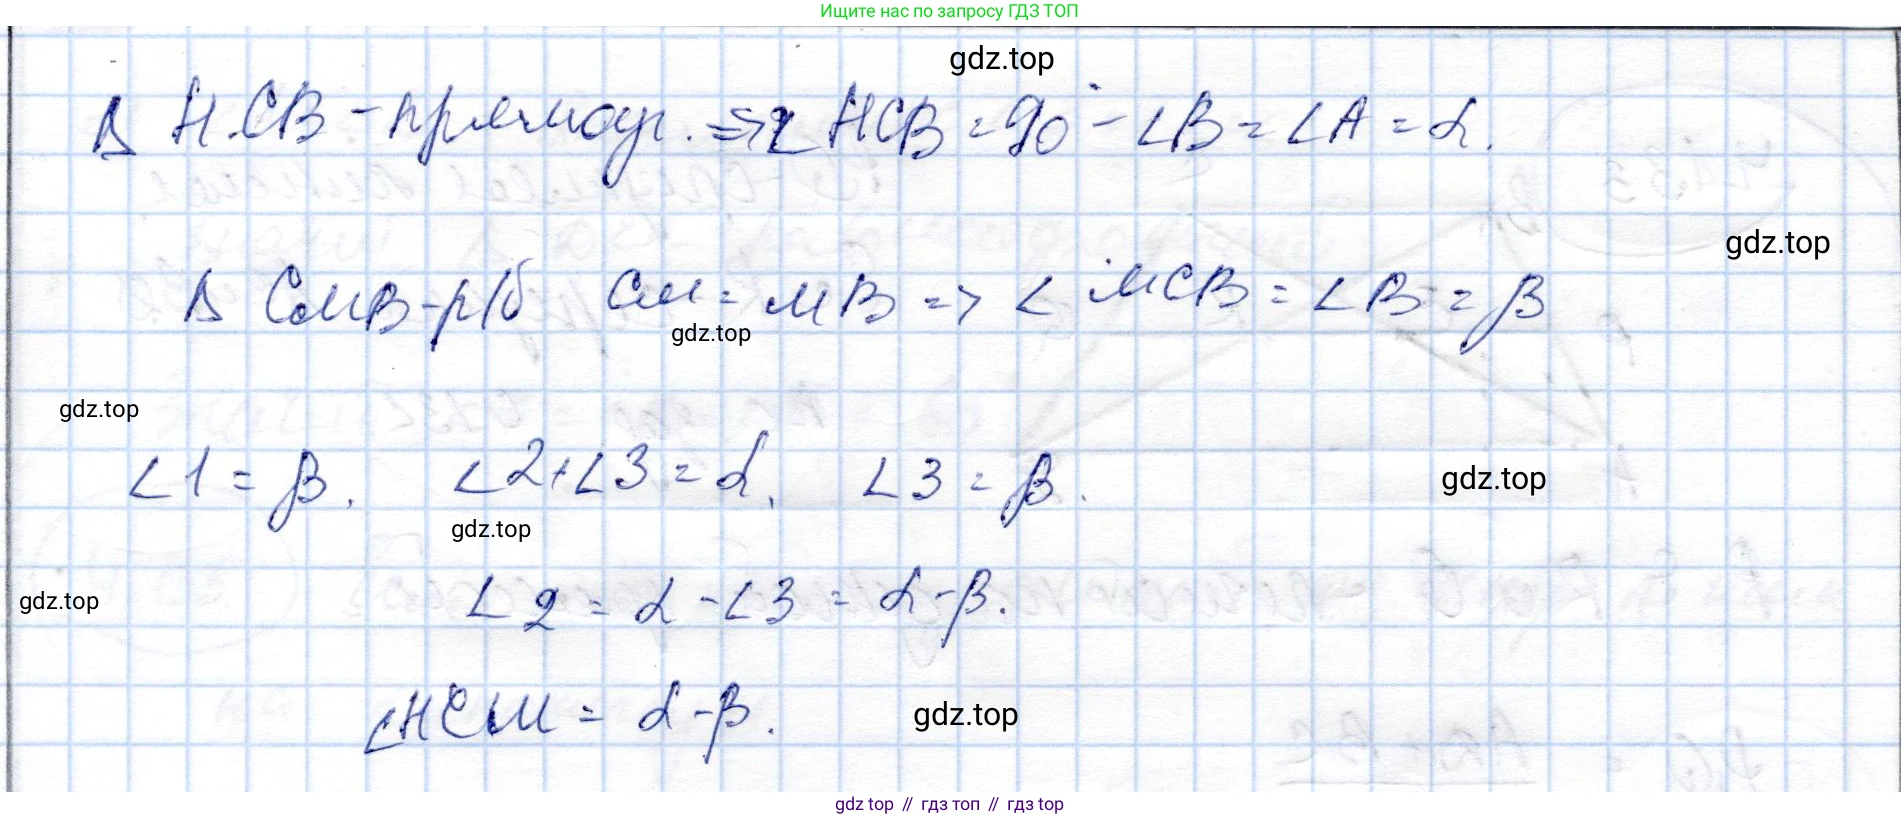 Ищите нас по запросу ГДЗ ТОП
gdz.top
Δ HCB - прямоуг. => ∠HCB = 90° - ∠B = ∠A = α.
gdz.top
Δ CMB - р/б CM = MB => ∠MCB = ∠B = β
gdz.top
gdz.top
∠1 = β. ∠2 + ∠3 = α. ∠3 = β.
gdz.top
gdz.top
∠2 = α - ∠3 = α - β.
gdz.top
∠HCM = α - β.
gdz.top
gdz top // гдз топ // гдз top